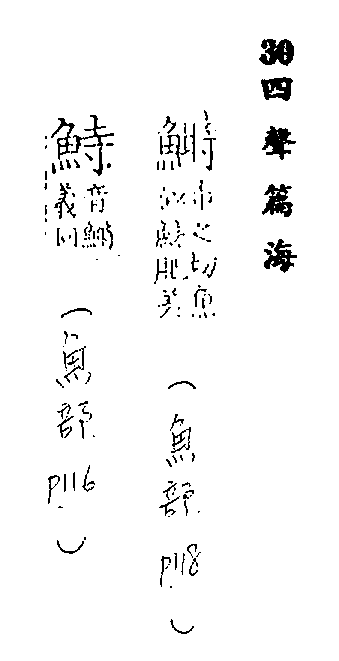 30四聲篇海
鰣市之切魚
似魴肥美
(魚部 P118)
䱰音鰣
義同
(魚部 P116)